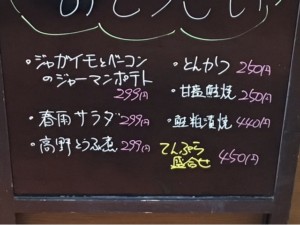 ・ジャガイモとベーコン
のジャーマンポテト
299円
・春雨サラダ 299円
・高野とうふ煮 299円
・とんかつ 250円
・甘塩鮭焼 250円
・粕漬焼 440円
てんぷら
盛合せ 450円